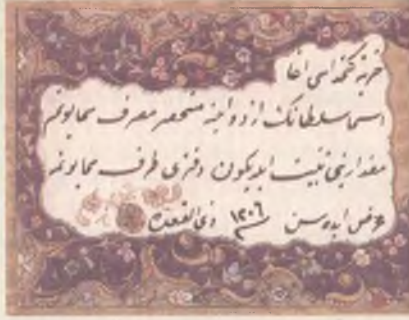 خزينه كتخداسى اغا
اسما سلطانك ازدواجنه منحصر مصرف همايونم
مقدارينى تثبيت ايديكون دفترى طرف همايونمه
عرض ايده سن ١٢٠٦ ذى القعده